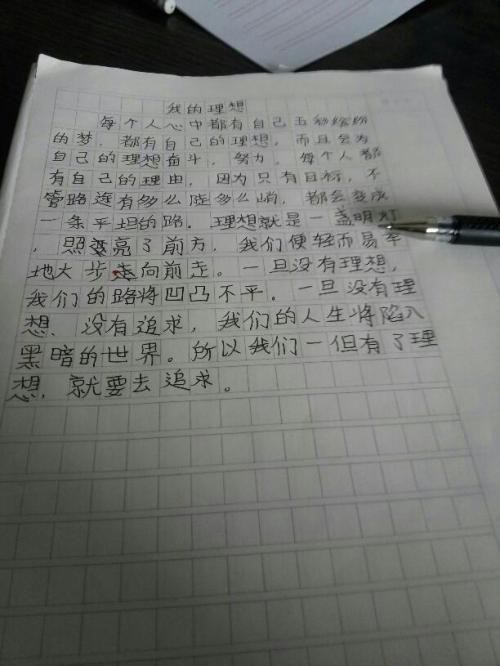 我的理想
每个人心中都有自己五彩缤纷
的梦，都有自己的理想，而且会为
自己的理想奋斗，努力，每个人都
有自己的理由，因为只有目标，不
管路途有多么陡多么峭，都会变成
一条平坦的路。理想就是一盏明灯
，照亮了前方，我们便轻而易举
地大步走向前走。一旦没有理想，
我们的路将凹凸不平。一旦没有理
想，没有追求，我们的人生将陷入
黑暗的世界。所以我们一但有了理
想，就要去追求。